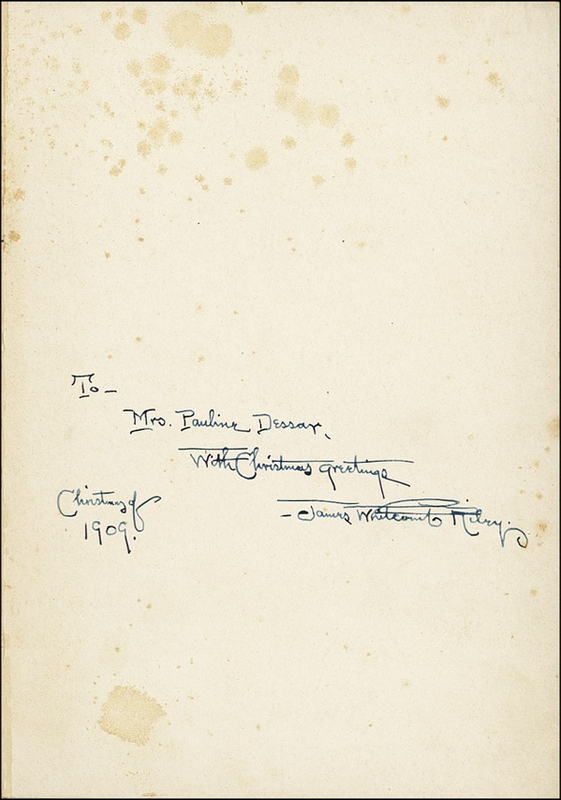 To—
Mrs. Pauline Dessar,
With Christmas greetings
—James Whitcomb Riley.
Christmas of
1909.